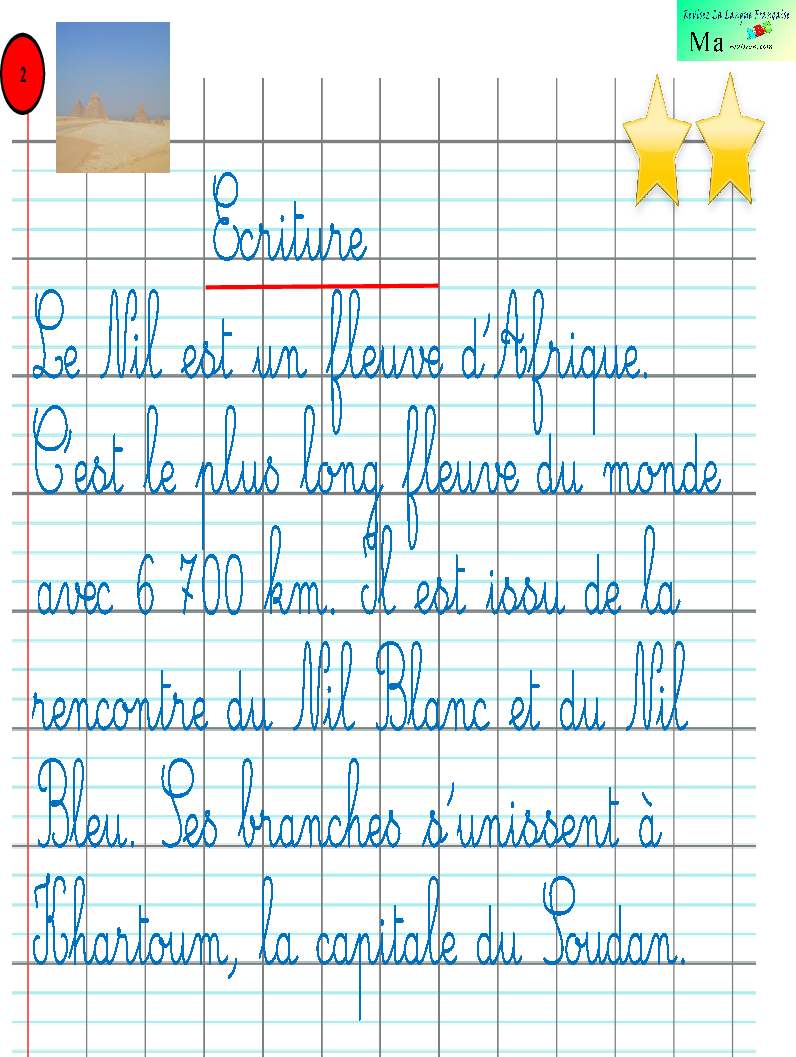 Revisez La Langue Française
2
Ma
Ecriture
Le Nil est un fleuve d'Afrique.
C'est le plus long fleuve du monde
avec 6 700 km. Il est issu de la
rencontre du Nil Blanc et du Nil
Bleu. Ses branches s'unissent à
Khartoum, la capitale du Soudan.